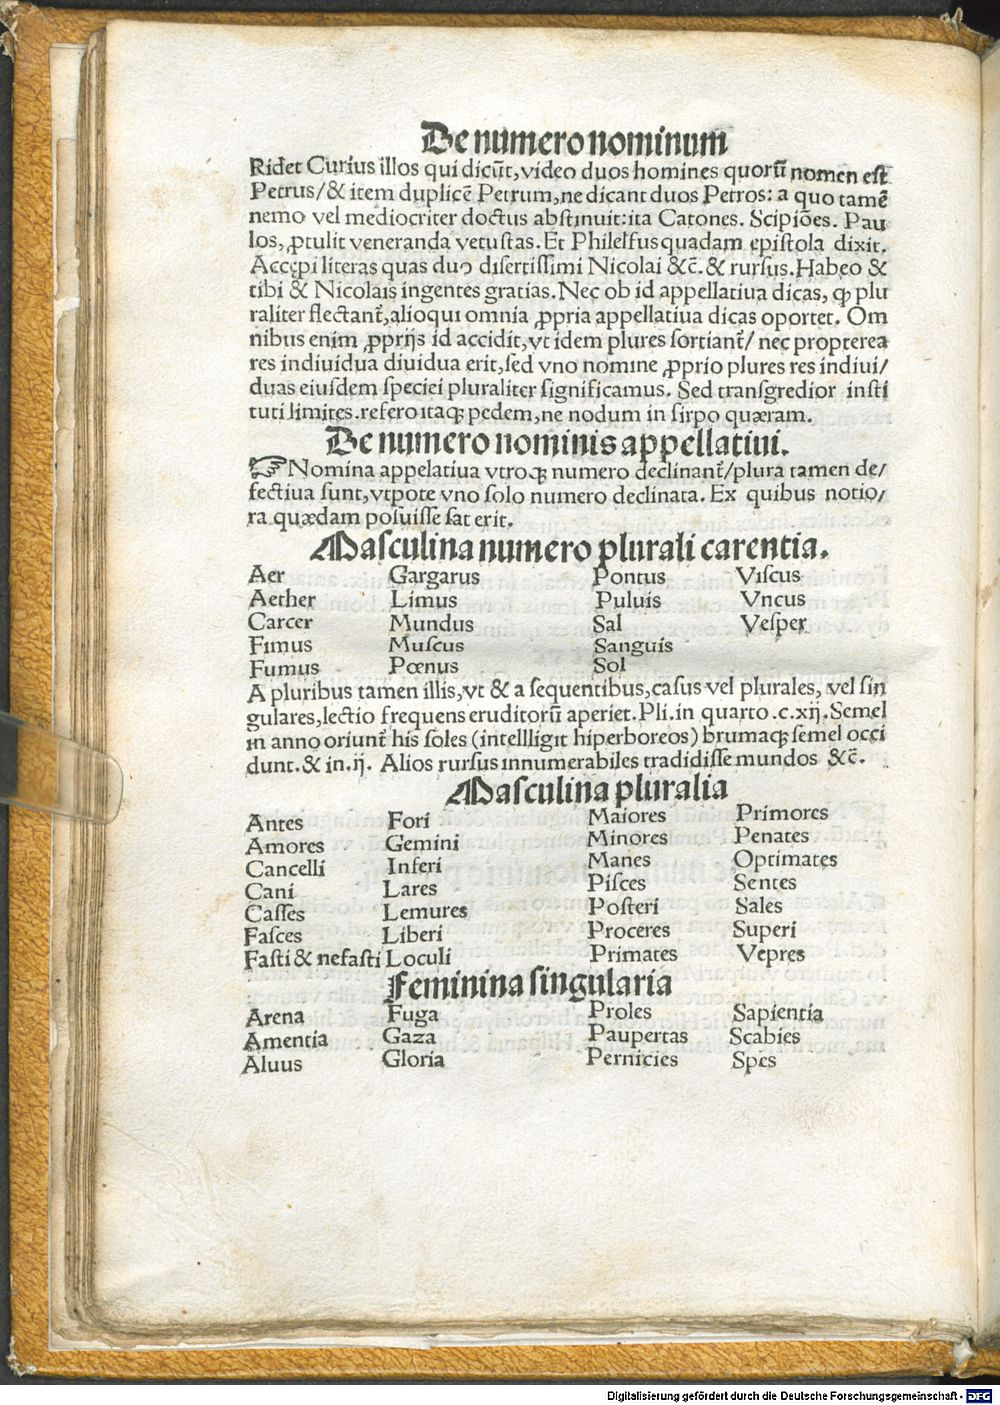 De numero nominum
Ridet Curius illos qui dicūt, video duos homines quorū nomen est
Petrus/ & item duplicē Petrum, ne dicant duos Petros: a quo tamē
nemo vel mediocriter doctus abstinuit: ita Catones. Scipiōes. Pau
los, ꝓtulit veneranda vetustas. Et Philelfus quadam epistola dixit.
Accępi literas quas duo disertissimi Nicolai &c̄. & rursus. Habeo &
tibi & Nicolais ingentes gratias. Nec ob id appellatiua dicas, ꝙ plu
raliter flectant̄, alioqui omnia ꝓpria appellatiua dicas oportet. Om
nibus enim ꝓprijs id accidit, vt idem plures sortiant̄/ nec propterea
res indiuidua diuidua erit, sed vno nomine ꝓprio plures res indiui/
duas eiusdem speciei pluraliter significamus. Sed transgredior insti
tuti limites. refero itaqꝫ pedem, ne nodum in sirpo quæram.
De numero nominis appellatiui.
☞ Nomina appelatiua vtroqꝫ numero declinant̄/ plura tamen de/
fectiua sunt, vtpote vno solo numero declinata. Ex quibus notio/
ra quædam posuisse sat erit.
Masculina numero plurali carentia.
Aer Gargarus Pontus Viscus
Aether Limus Puluis Vncus
Carcer Mundus Sal Vesper
Fimus Muscus Sanguis
Fumus Pœnus Sol
A pluribus tamen illis, vt & a sequentibus, casus vel plurales, vel sin
gulares, lectio frequens eruditorū aperiet. Pli. in quarto .c. xij. Semel
in anno oriunt̄ his soles (intellligit hiperboreos) brumaqꝫ semel occi
dunt. & in. ij. Alios rursus innumerabiles tradidisse mundos &c̄.
Masculina pluralia
Antes Fori Maiores Primores
Amores Gemini Minores Penates
Cancelli Inferi Manes Optimates
Cani Lares Pisces Sentes
Casses Lemures Posteri Sales
Fasces Liberi Proceres Superi
Fasti & nefasti Loculi Primates Vepres
Feminina singularia
Arena Fuga Proles Sapientia
Amentia Gaza Paupertas Scabies
Aluus Gloria Pernicies Spes
Digitalisierung gefördert durch die Deutsche Forschungsgemeinschaft - DFG